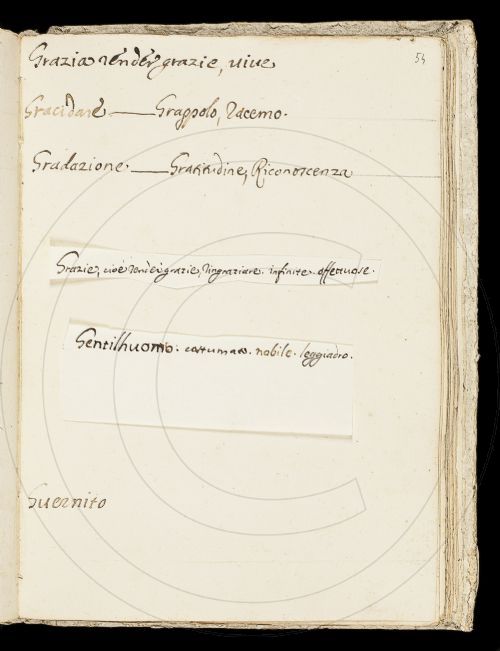 54
Grazia render grazie, vive
Gracidare — Grappolo, racemo.
Gradazione. — Gratitudine, Riconoscenza
Grazie, cioè render grazie, ringraziare. infinite. affettuose.
Gentilhuomo. costumato. nobile. leggiadro.
Guernito